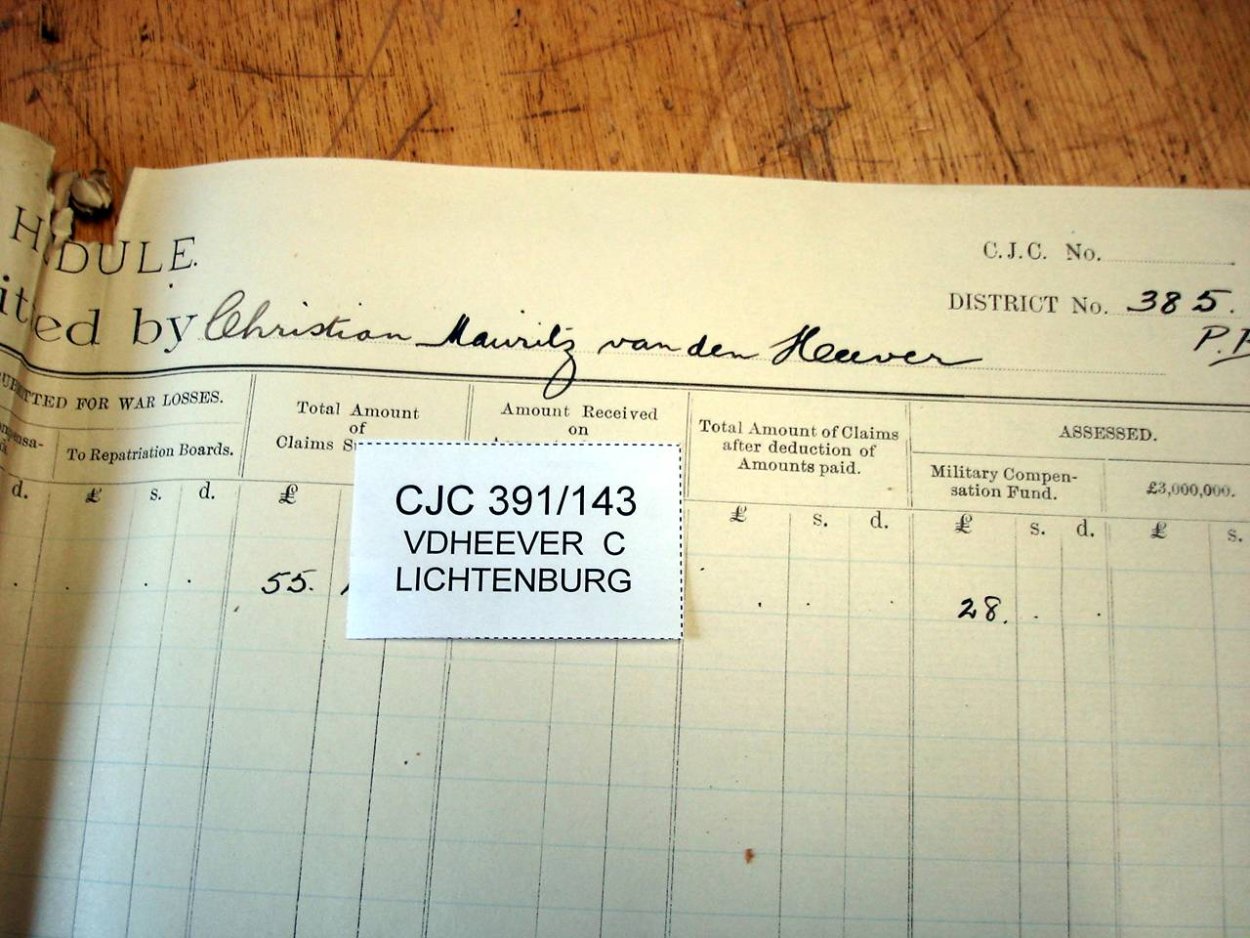 DULE.
C.J.C. No.
DISTRICT No. 385.
ed by Christian Mauritz van den Heever
TTED FOR WAR LOSSES.
To Repatriation Boards.
Total Amount
of
Claims
Amount Received
on
Total Amount of Claims
after deduction of
Amounts paid.
ASSESSED.
Military Compen-
sation Fund.
£3,000,000.
d. £ s. d. £ £ s. d. £ s. d. £ s.
55. 28.
CJC 391/143
VDHEEVER C
LICHTENBURG